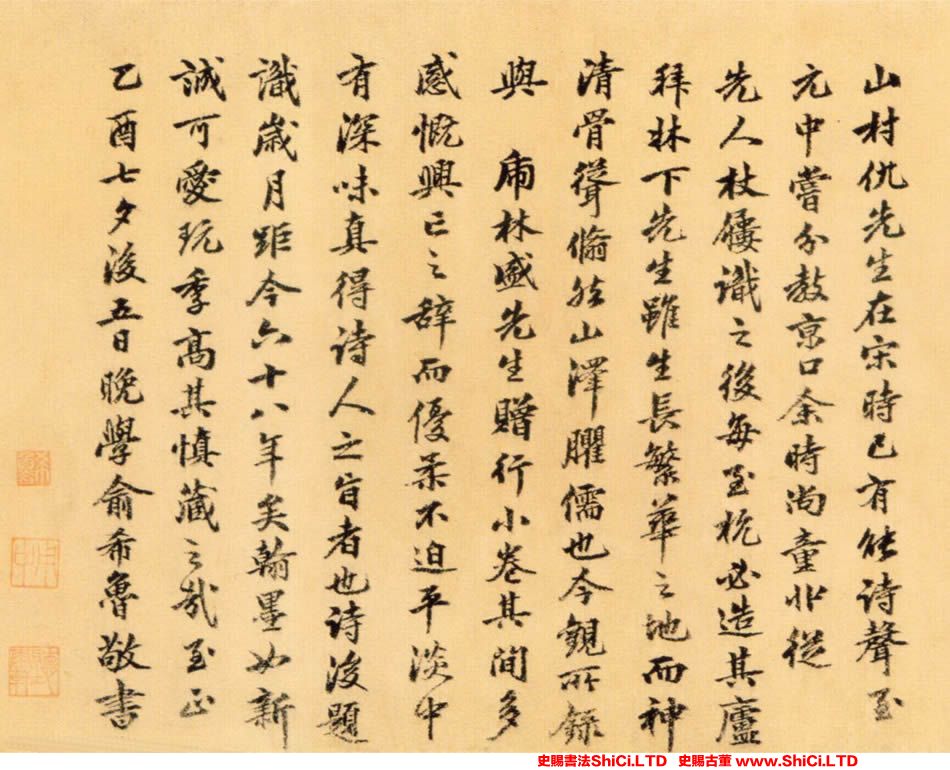 山村仇先生在宋時已有能詩聲至
元中嘗分教京口余時尚童丱從
先人杖屨識之後每至杭必造其廬
拜林下先生雖生長繁華之地而神
清骨聳翛然山澤臞儒也今觀所錄
與 虎林盛先生贈行小卷其間多
感慨興亡之辭而優柔不迫平淡中
有深味真得詩人之旨者也詩後題
識歲月距今六十八年矣翰墨如新
誠可愛玩季高其慎藏之哉至正
乙酉七夕後五日晚學俞希魯敬書
史賜書法ShiCi.LTD 史賜古董 www.ShiCi.LTD